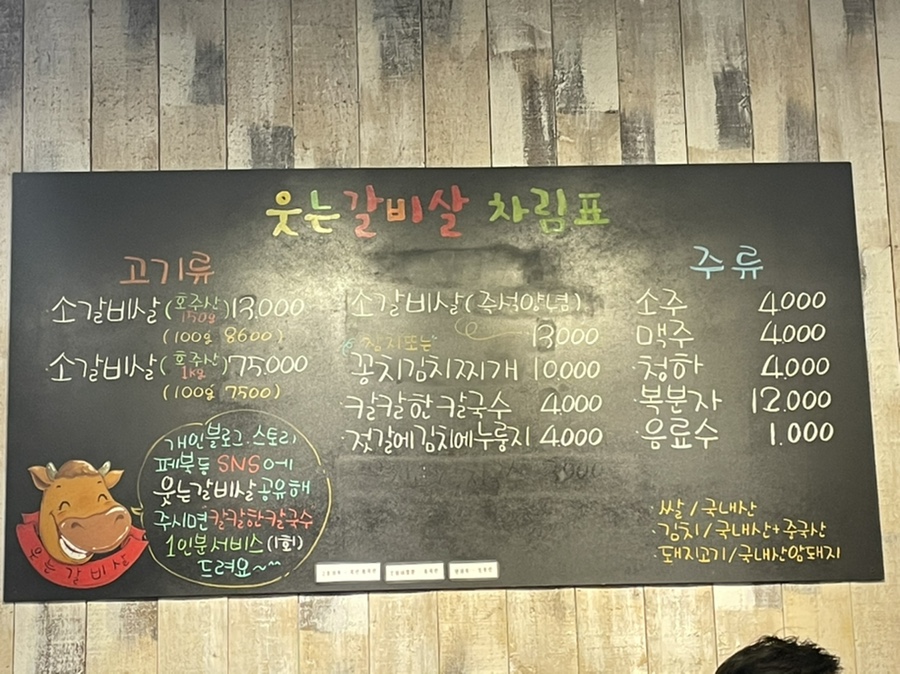 웃는갈비살 차림표
고기류
소갈비살(호주산 150g)13,000
(100g 8600)
소갈비살(호주산 1kg)75,000
(100g 7500)
소갈비살(즉석양념)
13,000
꽁치김치찌개 10,000
칼칼한칼국수 4,000
젓갈에김치에누룽지 4,000
주류
소주 4,000
맥주 4,000
청하 4,000
복분자 12,000
음료수 1,000
개인블로그·스토리
페북등 SNS에
웃는갈비살공유해
주시면칼칼한칼국수
1인분서비스(1회)
드려요~
웃는갈비살
쌀/국내산
김치/국내산+중국산
돼지고기/국내산암돼지